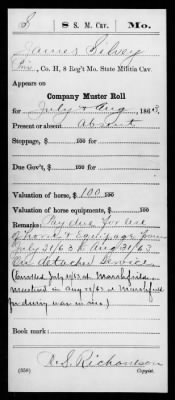 S | 8 | S. M. Cav. | Mo.
James Silvey
Pri, Co. H, 8 Reg't Mo. State Militia Cav.
Appears on
Company Muster Roll
for July & Aug, 1863.
Present or absent Absent
Stoppage, $ 100 for
Due Gov't, $ 100 for
Valuation of horse, $ 100
Valuation of horse equipments, $ 100
Remarks: Pay due for use
of Horse & Equipage from
July 21/63 to Aug 31/63
On detached Service
(Enrolled July 21/63 at Marshfield
mustered in Aug /63 at Marshfield
for during war in mo.)
Book mark:
Richardson
(358) Copyist.